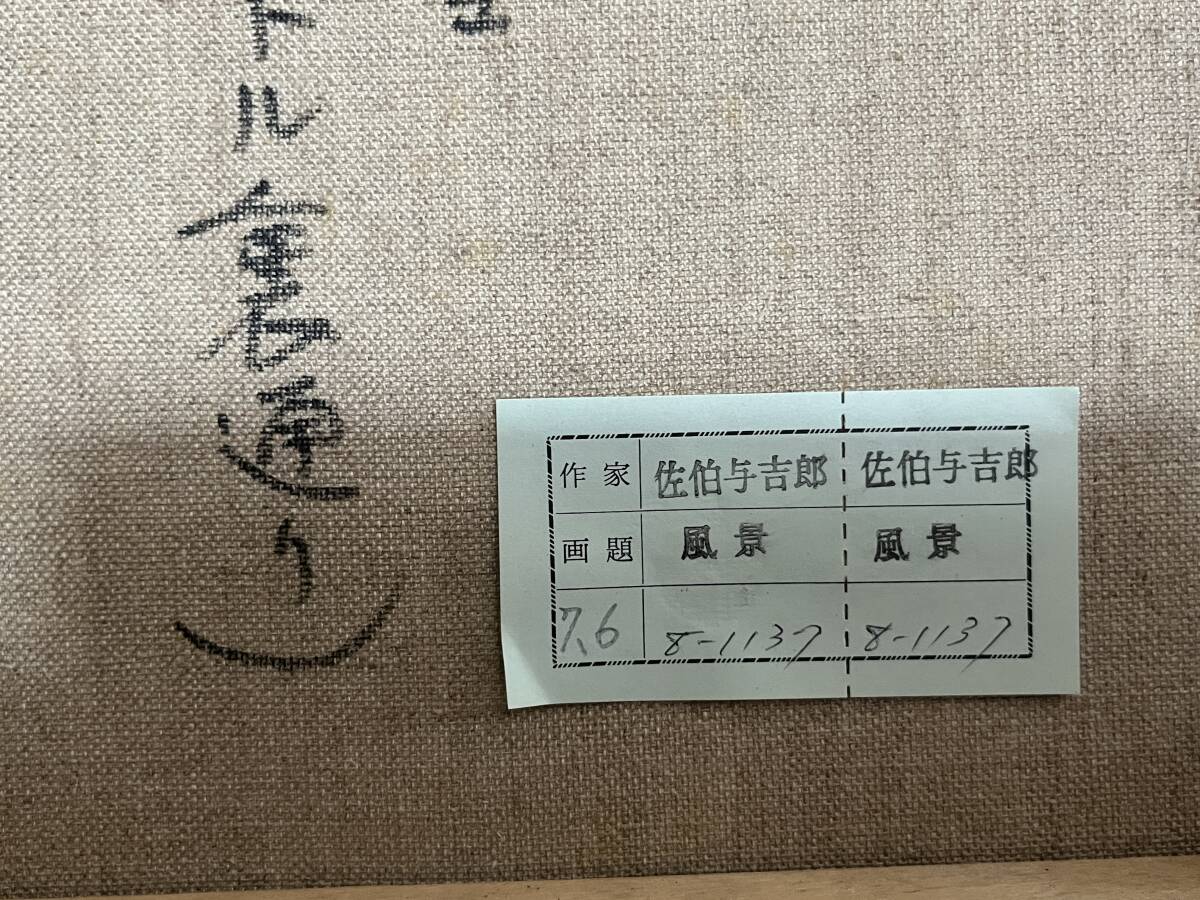 トル裏通り）
作家 佐伯与吉郎 佐伯与吉郎
画題 風景 風景
7.6 8-1137 8-1137